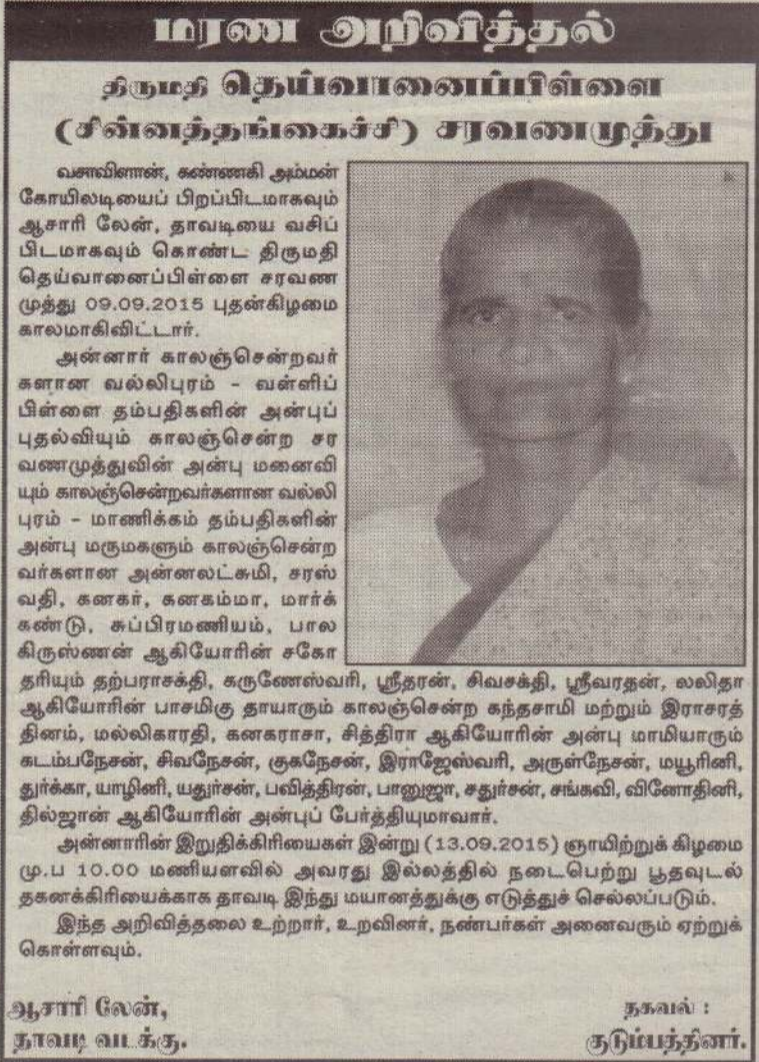 மரண அறிவித்தல்
திருமதி தெய்வானைப்பிள்ளை
(சின்னத்தங்கைச்சி) சரவணமுத்து
வசாவிளான், கண்ணகி அம்மன்
கோயிலடியைப் பிறப்பிடமாகவும்
ஆசாரி லேன், தாவடியை வசிப்
பிடமாகவும் கொண்ட திருமதி
தெய்வானைப்பிள்ளை சரவண
முத்து 09.09.2015 புதன்கிழமை
காலமாகிவிட்டார்.
அன்னார் காலஞ்சென்றவர்
களான வல்லிபுரம் - வள்ளிப்
பிள்ளை தம்பதிகளின் அன்புப்
புதல்வியும் காலஞ்சென்ற சர
வணமுத்துவின் அன்பு மனைவி
யும் காலஞ்சென்றவர்களான வல்லி
புரம் - மாணிக்கம் தம்பதிகளின்
அன்பு மருமகளும் காலஞ்சென்ற
வர்களான அன்னலட்சுமி, சரஸ்
வதி, கனகர், கனகம்மா, மார்க்
கண்டு, சுப்பிரமணியம், பால
கிருஸ்ணன் ஆகியோரின் சகோ
தரியும் தற்பராசக்தி, கருணேஸ்வரி, ஸ்ரீதரன், சிவசக்தி, ஸ்ரீவரதன், லலிதா
ஆகியோரின் பாசமிகு தாயாரும் காலஞ்சென்ற கந்தசாமி மற்றும் இராசரத்
தினம், மல்லிகாரதி, கனகராசா, சித்திரா ஆகியோரின் அன்பு மாமியாரும்
கடம்பநேசன், சிவநேசன், குகநேசன், இராஜேஸ்வரி, அருள்நேசன், மயூரினி,
துர்க்கா, யாழினி, யதுர்சன், பவித்திரன், பானுஜா, சதுர்சன், சங்கவி, வினோதினி,
தில்ஜான் ஆகியோரின் அன்புப் பேர்த்தியுமாவார்.
அன்னாரின் இறுதிக்கிரியைகள் இன்று (13.09.2015) ஞாயிற்றுக் கிழமை
மு.ப 10.00 மணியளவில் அவரது இல்லத்தில் நடைபெற்று பூதவுடல்
தகனக்கிரியைக்காக தாவடி இந்து மயானத்துக்கு எடுத்துச் செல்லப்படும்.
இந்த அறிவித்தலை உற்றார், உறவினர், நண்பர்கள் அனைவரும் ஏற்றுக்
கொள்ளவும்.
ஆசாரி லேன், தகவல் :
தாவடி வடக்கு. குடும்பத்தினர்.